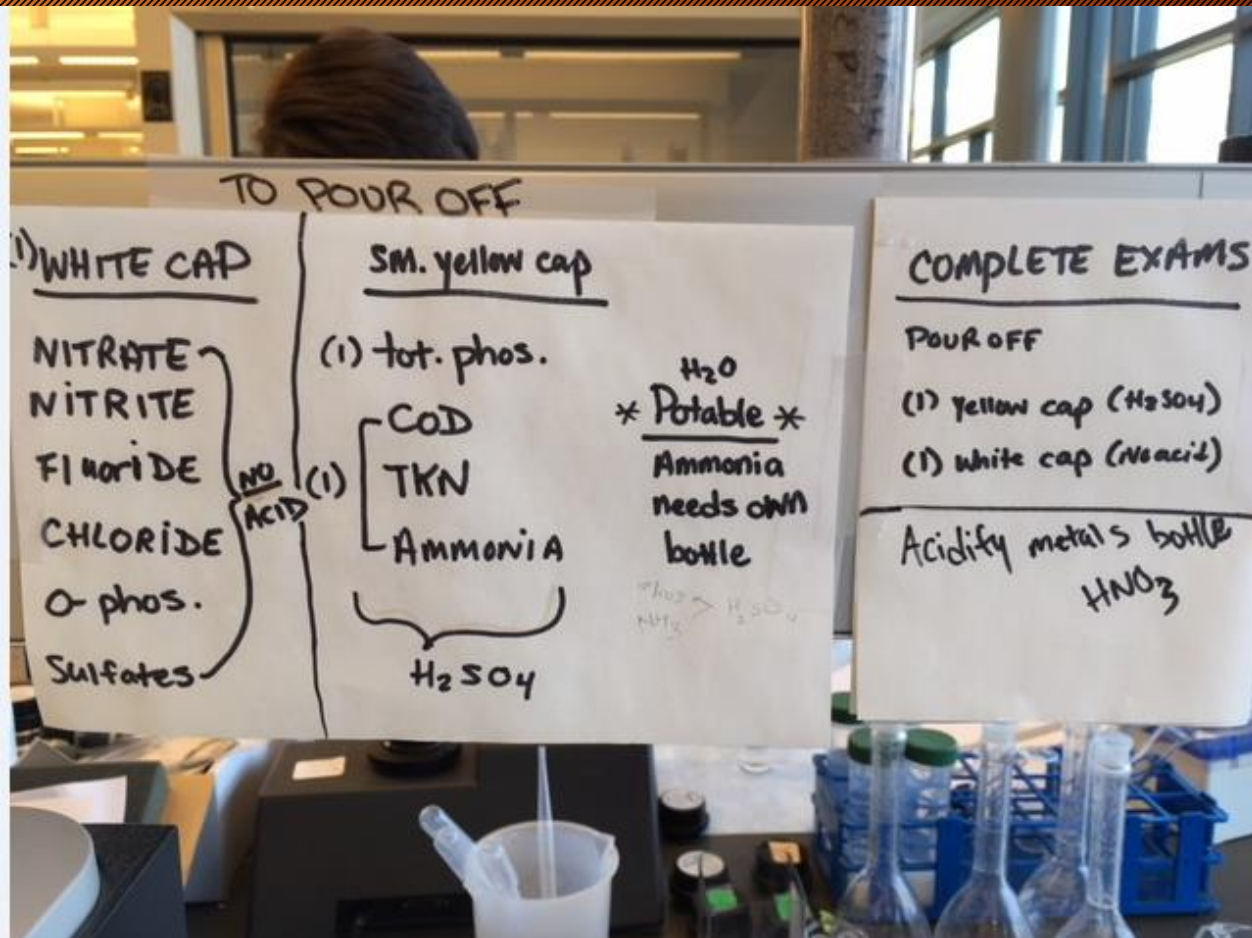 TO POUR OFF
(1) WHITE CAP
NITRATE
NITRITE
FluoriDE
CHLORIDE
O-phos.
Sulfates
NO
ACID
Sm. yellow cap
(1) tot. phos.
(1)
COD
TKN
AMMONiA
H₂SO₄
H₂O
* Potable *
Ammonia
needs own
bottle
Phos
NH₃ > H₂SO₄
COMPLETE EXAMS
POUR OFF
(1) yellow cap (H₂SO4)
(1) white cap (No acid)
Acidify metals bottle
HNO₃